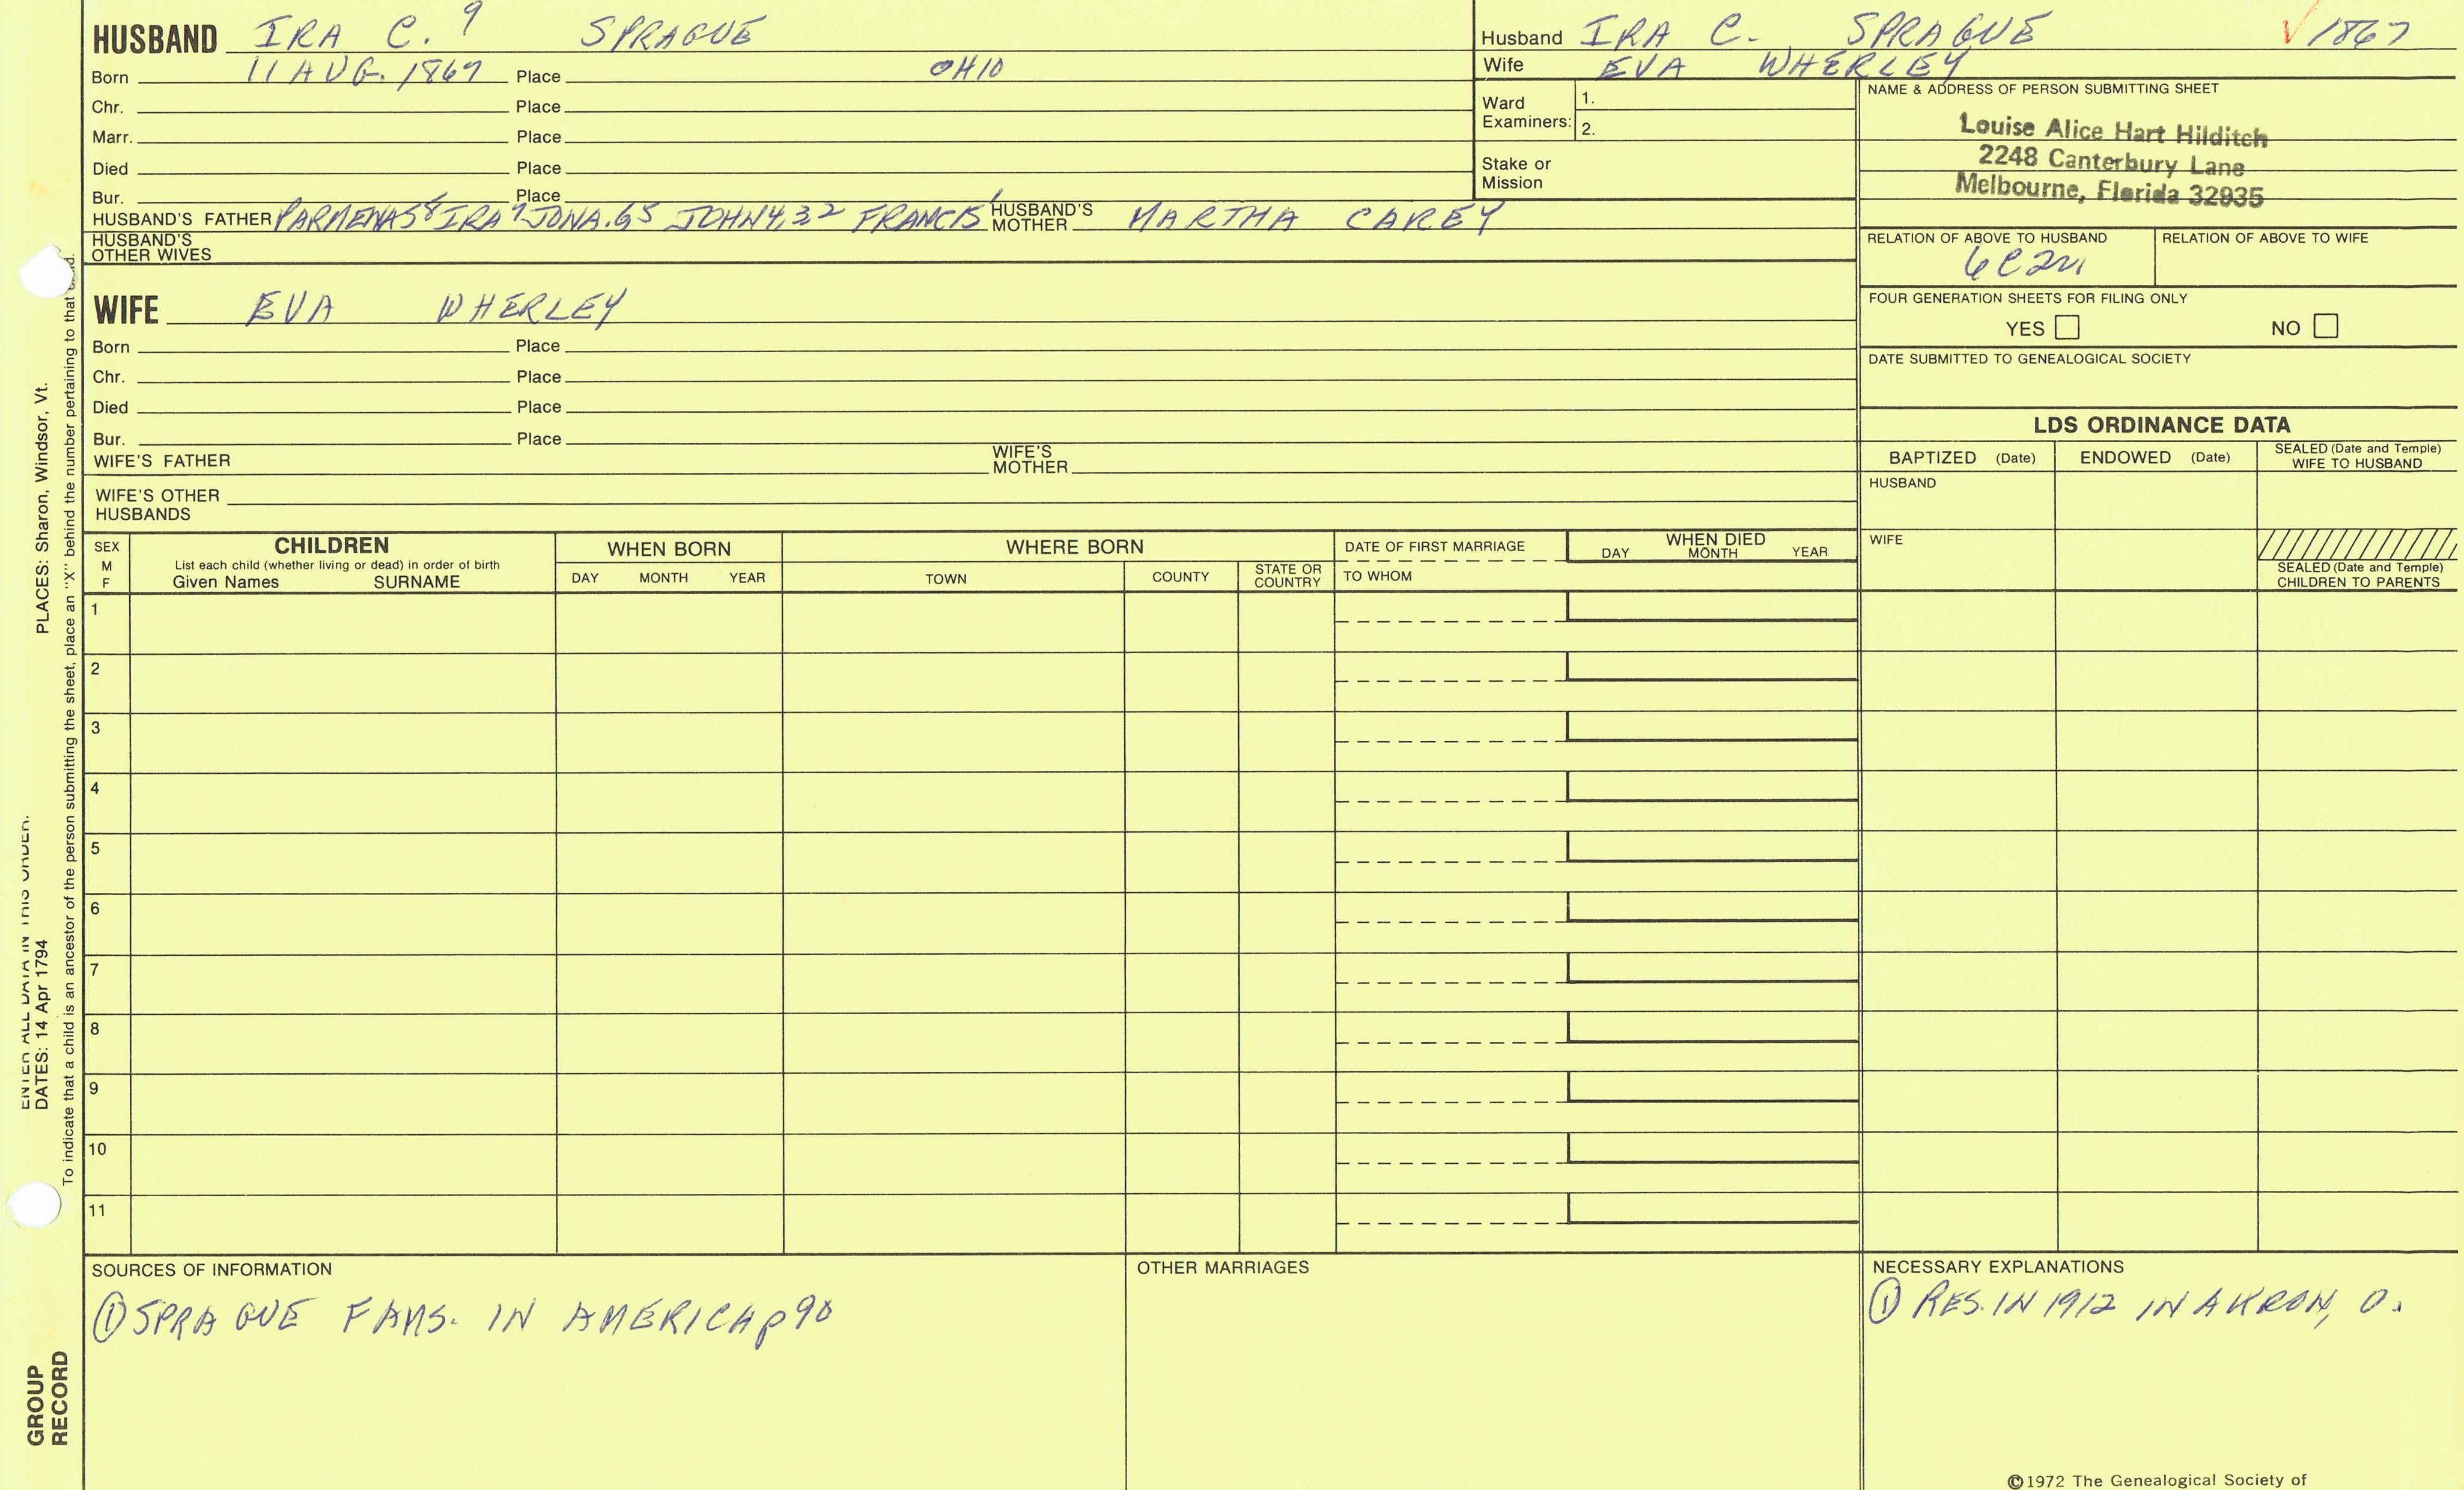 HUSBAND IRA C. 9 SPRAGUE
Born 11 AUG. 1867 Place OHIO
Chr. Place
Marr. Place
Died Place
Bur. Place
HUSBAND'S FATHER PARMENAS 8 IRA 7 JONA. 65 JOHN 4,32 FRANCIS 1 HUSBAND'S MOTHER MARTHA CAREY
HUSBAND'S OTHER WIVES
Husband IRA C. SPRAGUE ✓ 1867
Wife EVA WHERLEY
Ward Examiners: 1.
2.
Stake or Mission
NAME & ADDRESS OF PERSON SUBMITTING SHEET
Louise Alice Hart Hilditch
2248 Canterbury Lane
Melbourne, Florida 32935
RELATION OF ABOVE TO HUSBAND RELATION OF ABOVE TO WIFE
6C2R
FOUR GENERATION SHEETS FOR FILING ONLY
YES NO
DATE SUBMITTED TO GENEALOGICAL SOCIETY
WIFE EVA WHERLEY
Born Place
Chr. Place
Died Place
Bur. Place
WIFE'S FATHER WIFE'S MOTHER
WIFE'S OTHER HUSBANDS
LDS ORDINANCE DATA
BAPTIZED (Date) ENDOWED (Date) SEALED (Date and Temple) WIFE TO HUSBAND
HUSBAND
WIFE
SEALED (Date and Temple) CHILDREN TO PARENTS
SEX M F
CHILDREN
List each child (whether living or dead) in order of birth
Given Names SURNAME
WHEN BORN
DAY MONTH YEAR
WHERE BORN
TOWN COUNTY STATE OR COUNTRY
DATE OF FIRST MARRIAGE
TO WHOM
WHEN DIED
DAY MONTH YEAR
1
2
3
4
5
6
7
8
9
10
11
SOURCES OF INFORMATION
① SPRAGUE FAMS. IN AMERICA p 90
OTHER MARRIAGES
NECESSARY EXPLANATIONS
① RES. IN 1912 IN AKRON, O.
©1972 The Genealogical Society of
ENTER ALL DATA IN THIS ORDER.
DATES: 14 Apr 1794 PLACES: Sharon, Windsor, Vt.
To indicate that a child is an ancestor of the person submitting the sheet, place an "X" behind the number pertaining to that
GROUP
RECORD